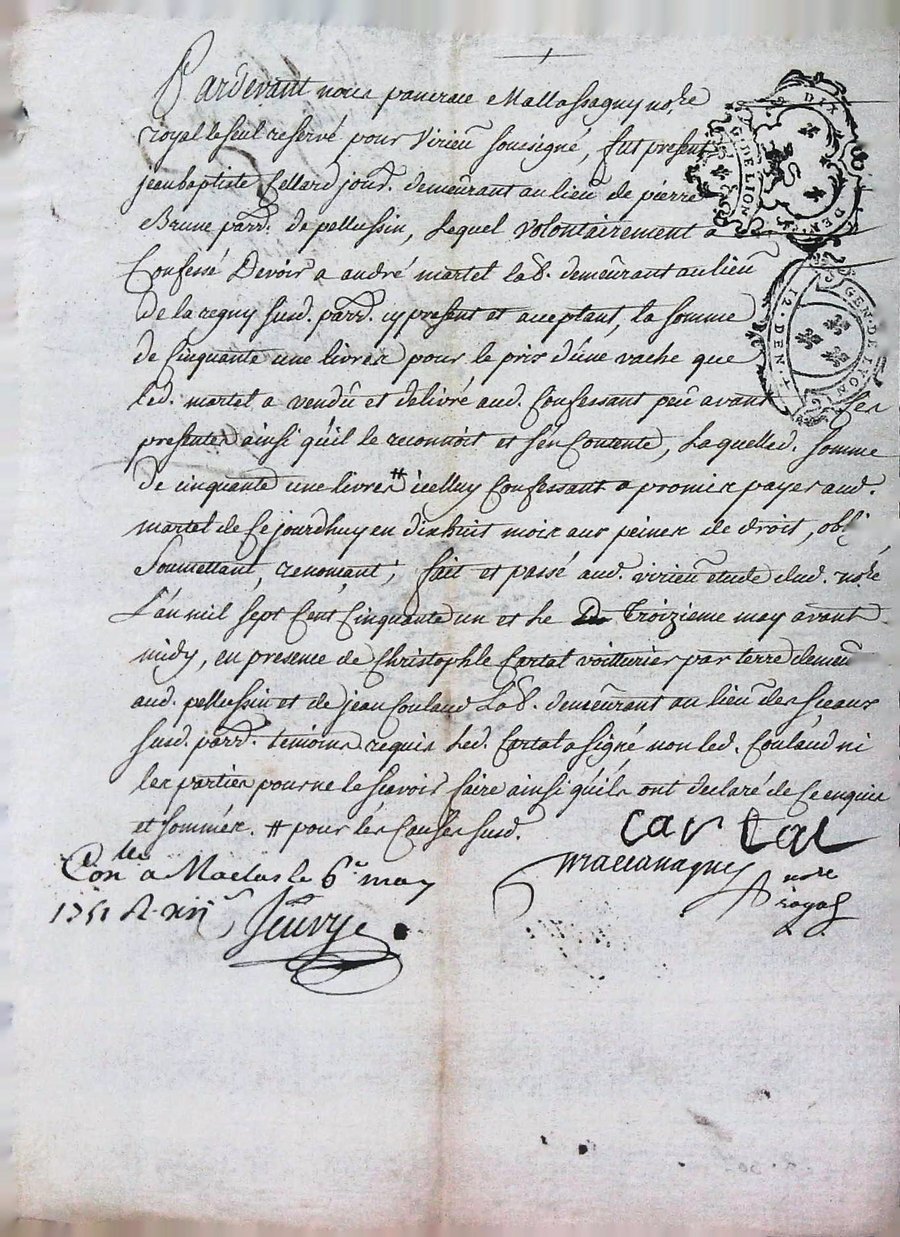 Pardevant nous pancrace Mallassagny no.re
royal le seul reservé pour Virieu sousigné, fut present
jean baptiste Cellard jour.d demeurant au lieu de pierre
Brune parr.d de pellussin, Lequel volontairement a
Confessé Devoir a andré martel lab.d demeurant au lieu
de la regny susd. parr.d cy present et acceptant, la somme
de Cinquante une livres pour le prix d'une vache que
led. martel a vendû et delivré aud. Confessant peû avant Ses
presentes ainsi quil le reconnoit et s'en Contente, Laquelled. somme
de cinquante une livres # icelluy Confessant a promis payer aud.
martel de Ce jourdhuy en dixhuit mois aux peines de droit, obl.
Soumettant, renonçant; fait et passé aud. virieu etude dud. no.re
L'an mil sept Cent Cinquante un et le Troizieme may avant
midy, en presence de Christophle Cartal voitturier par terre demeu
aud. pellussin et de jean Couland Lab.d demeurant au lieu des Sceaux
susd. parr.d temoins requis Led. Cartal a signé non led. Couland ni
les parties pour ne le sçavoir faire ainsi quils ont declaré de Ce enquis
et sommés. # pour les Causes susd.
carLal
mallassagny no.re
royal
Con.lle a Maclas le 6.e may
1751 R. xii s
G. DE LION
DIX DEN.
GEN. DE LYON
12. DEN.